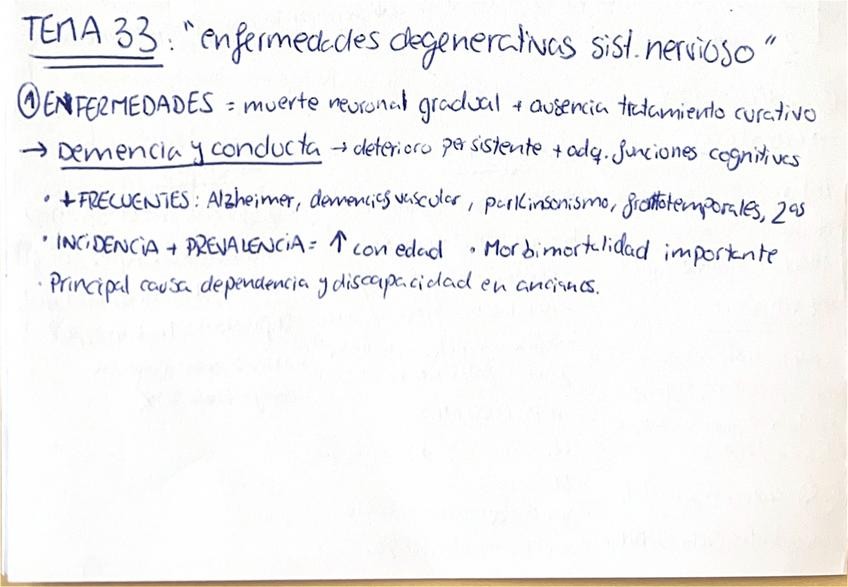 TEMA 33: "enfermedades degenerativas sist. nervioso"
① ENFERMEDADES = muerte neuronal gradual + ausencia tratamiento curativo
→ Demencia y conducta → deterioro persistente + adq. funciones cognitivas
· + FRECUENTES: Alzheimer, demencias vascular, parkinsonismo, frontotemporales, 2as
· INCIDENCIA + PREVALENCIA = ↑ con edad · Morbimortalidad importante
· Principal causa dependencia y discapacidad en ancianos.